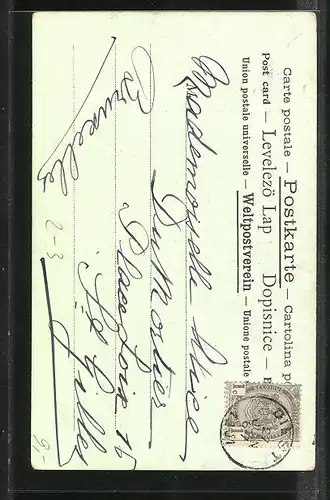 Carte postale – Postkarte – Cartolina po
Post card – Levelező Lap Dopisnice –
Union postale universelle – Weltpostverein – Unione postale
Mademoiselle Alice
Dumortier
Place Loix 15
St Gilles
Bruxelles
2-3
9,-
1c
DIEST